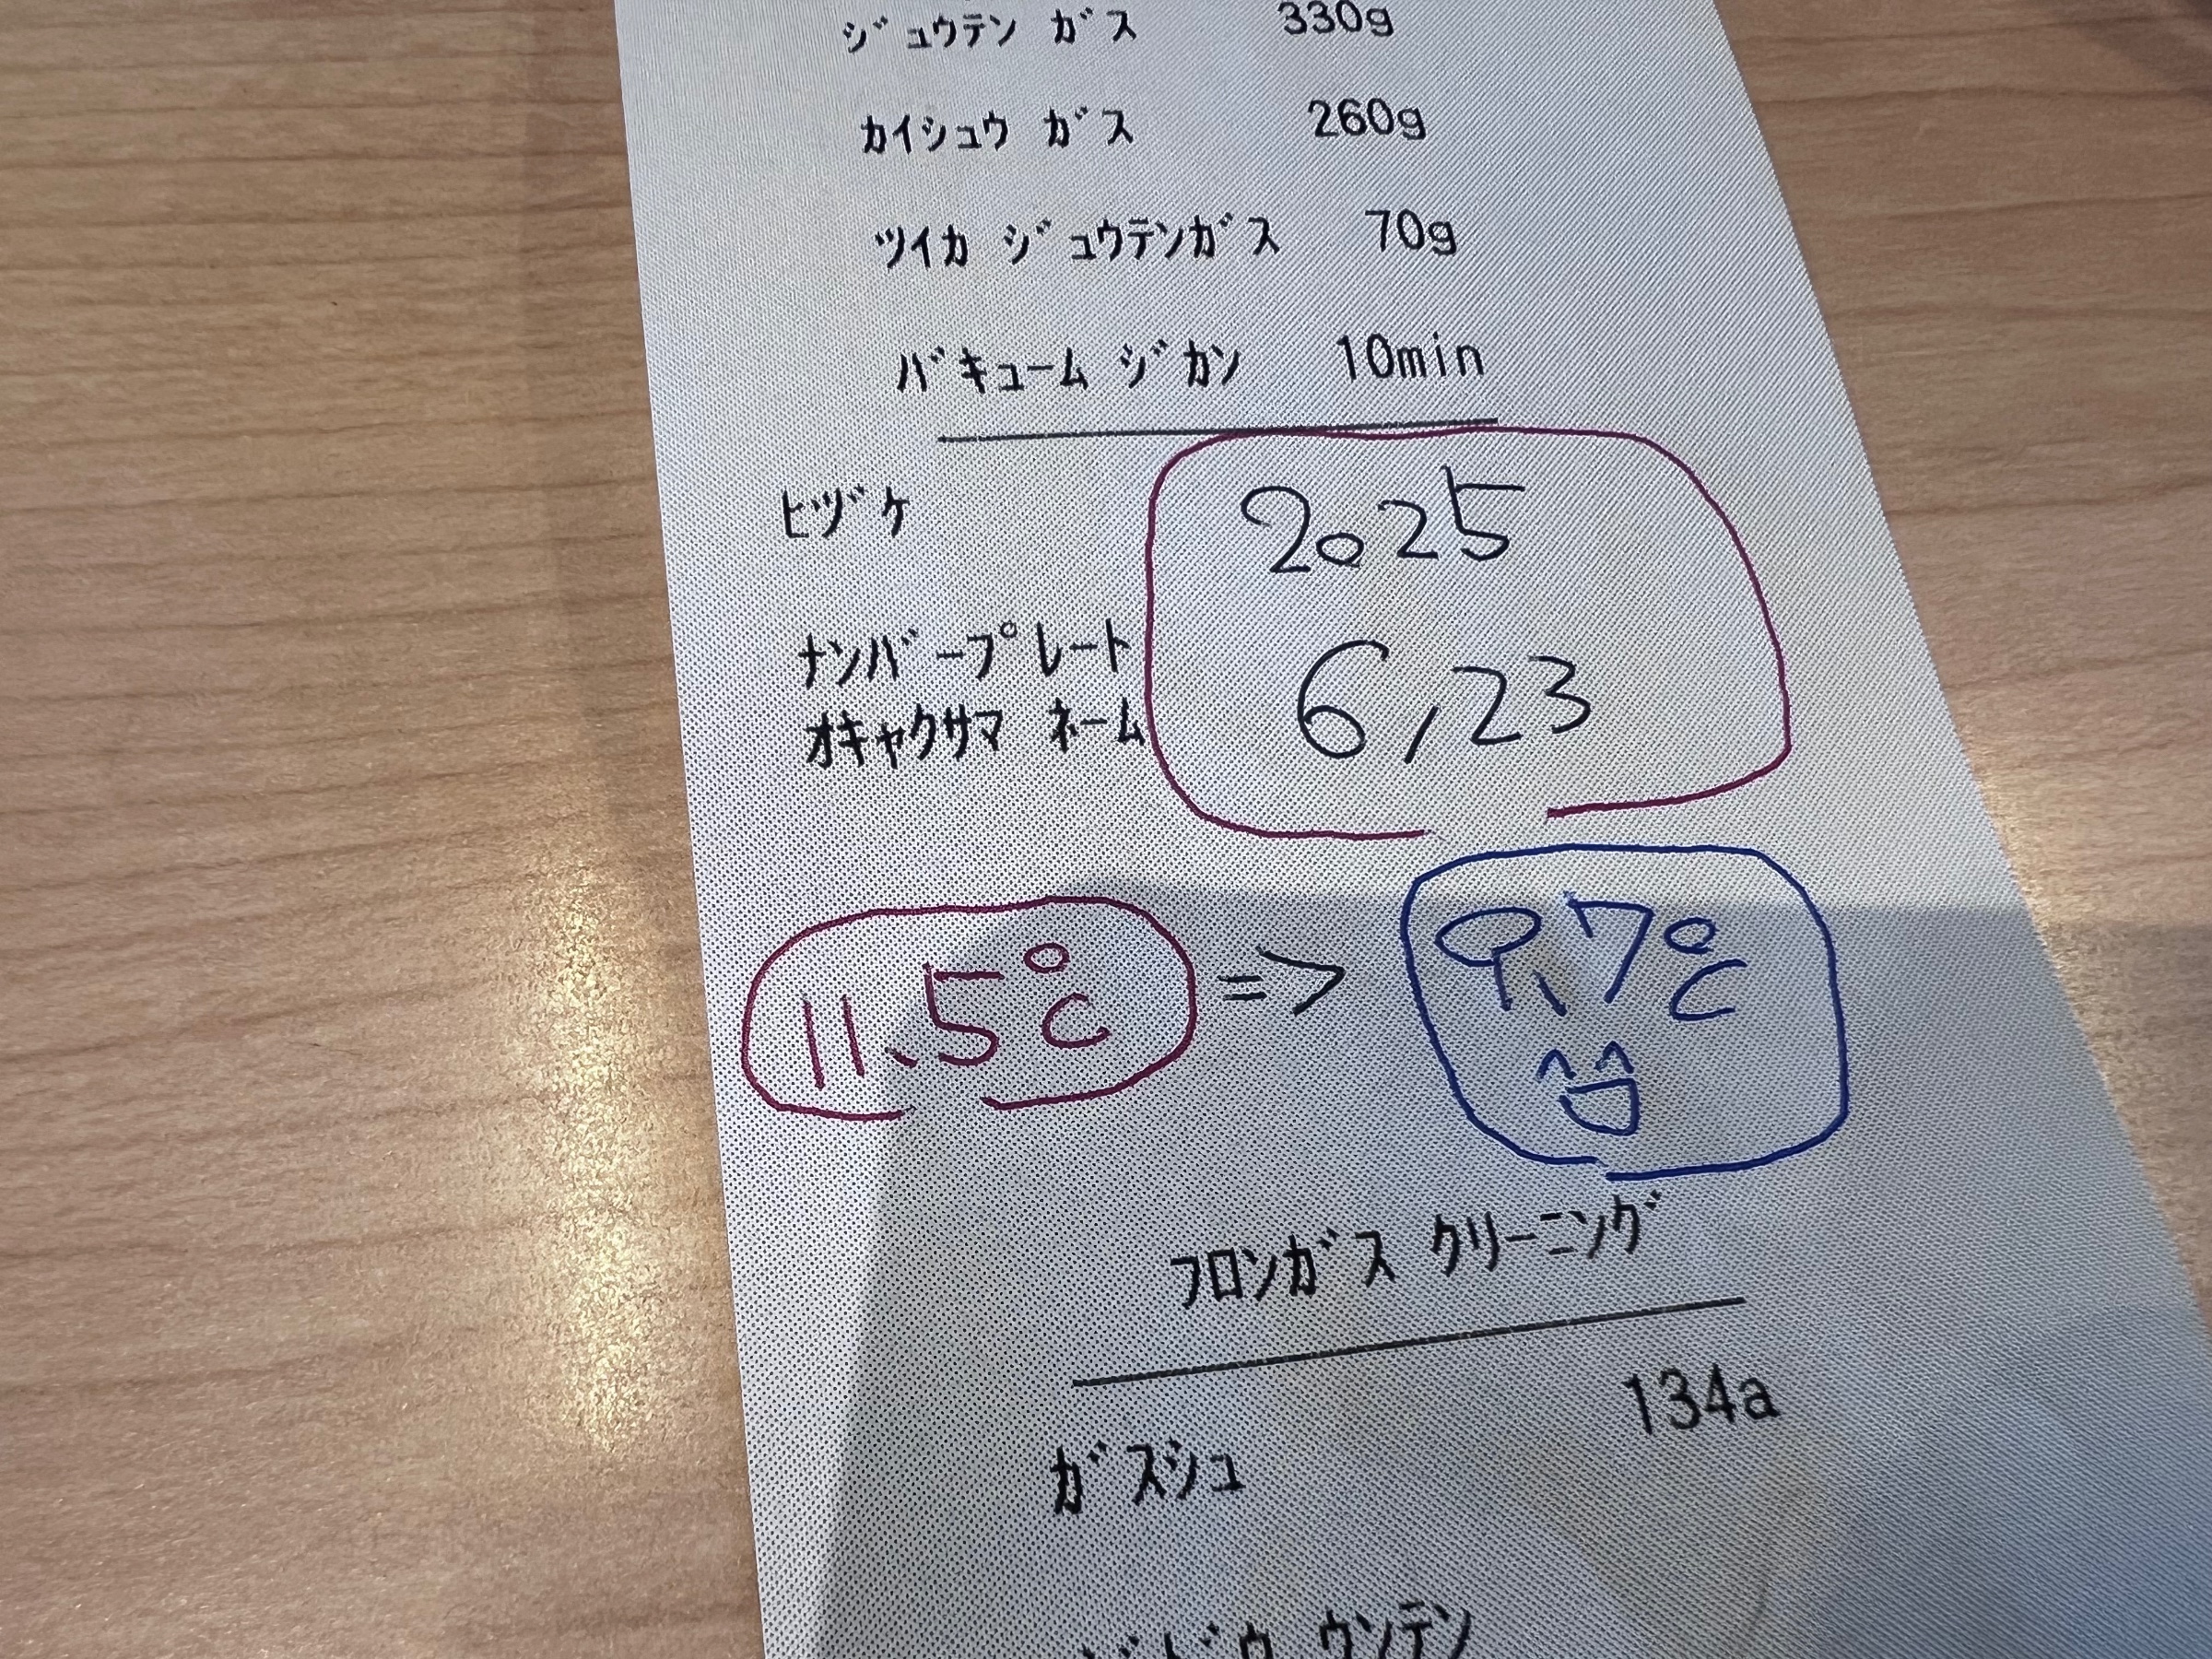 ジュウテン ガス 330g
カイシュウ ガス 260g
ツイカ ジュウテンガス 70g
バキューム ジカン 10min
ヒヅケ 2025
ナンバープレート 6,23
オキャクサマ ネーム
11.5℃ => 9.7℃
フロンガス クリーニング
ガスシュ 134a
ウンテン